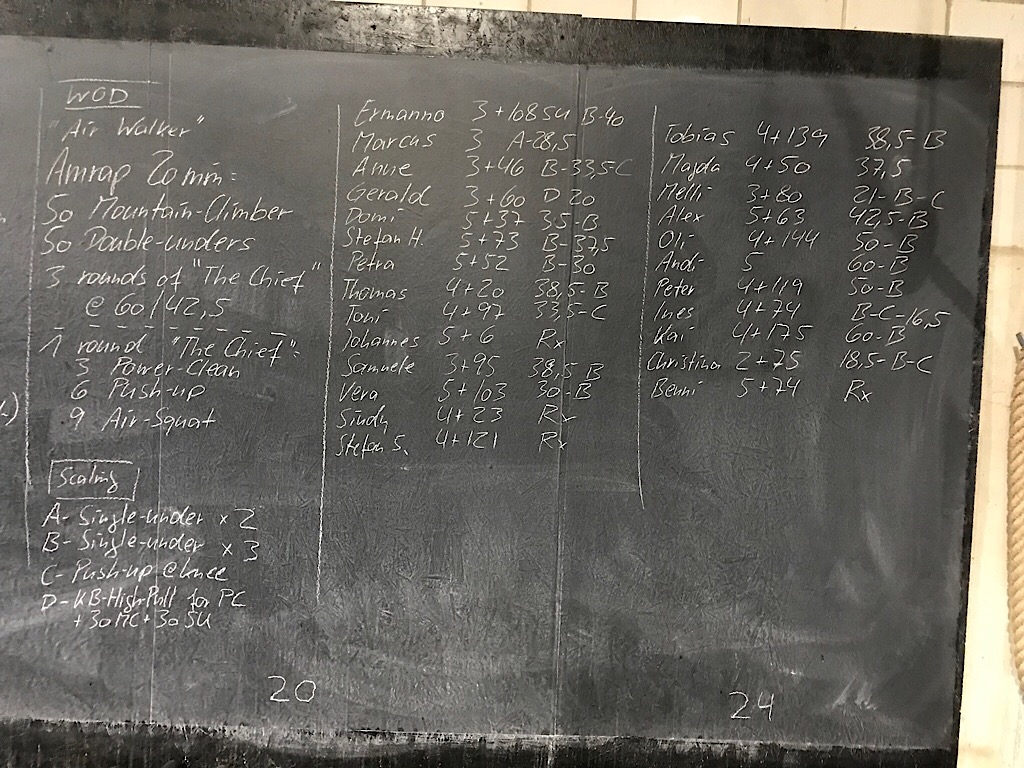 WOD
"Air Walker"
Amrap 20 min:
50 Mountain-Climber
50 Double-unders
3 rounds of "The Chief"
@ 60/42,5
1 round "The Chief":
3 Power-Clean
6 Push-up
9 Air-Squat
Scaling
A- Single-under x 2
B- Single-under x 3
C- Push-up @knee
D- KB-High-Pull for PC
+30MC+30SU
Ermanno 3+108SU B-40
Marcus 3 A-28,5
Anne 3+46 B-33,5-C
Gerald 3+60 D 20
Domi 5+37 35-B
Stefan H. 5+73 B-37,5
Petra 5+52 B-30
Thomas 4+20 38,5-B
Toni 4+97 33,5-C
Johannes 5+6 Rx
Samuele 3+95 38,5 B
Vera 5+103 30-B
Sindy 4+23 Rx
Stefan S. 4+121 Rx
20
Tobias 4+139 38,5-B
Majda 4+50 37,5
Melli 3+80 21-B-C
Alex 5+63 42,5-B
Oli 4+144 50-B
Andi 5 60-B
Peter 4+119 50-B
Ines 4+74 B-C-16,5
Kai 4+175 60-B
Christina 2+75 18,5-B-C
Benni 5+74 Rx
24